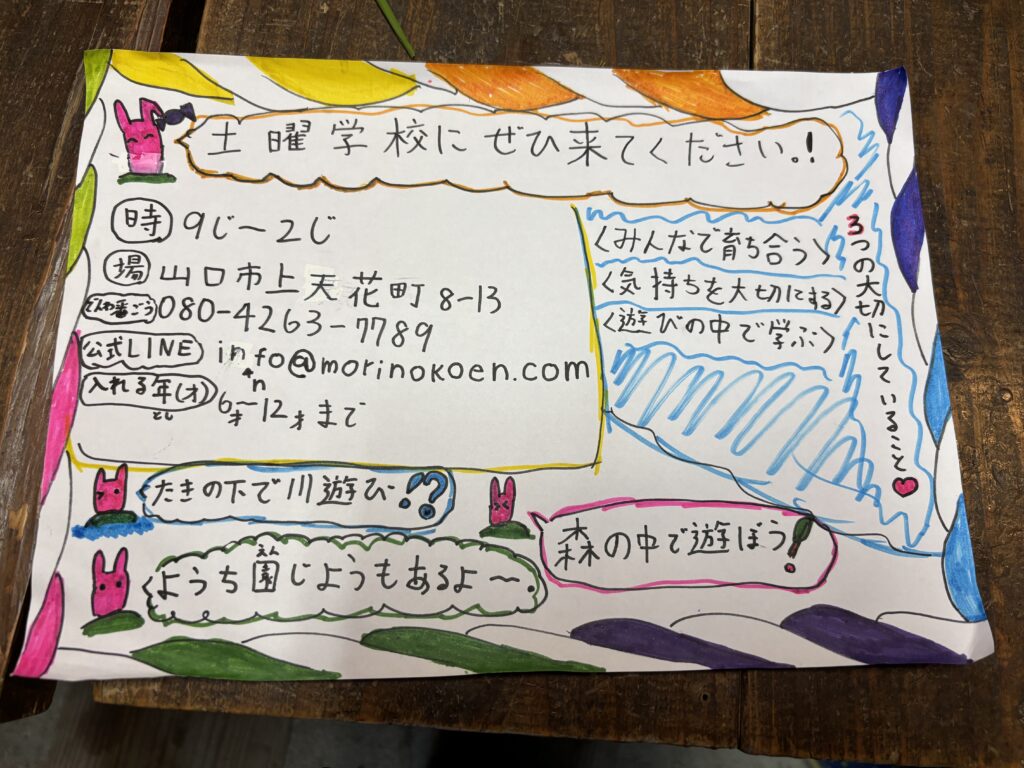 土曜学校にぜひ来てください。!
時 9じ〜2じ
場 山口市上天花町8-13
でんわ番ごう 080-4263-7789
公式LINE info@morinokoen.com
n
入れる年(才) 6才〜12才まで
とし
3つの大切にしていること
〈みんなで育ち合う〉
〈気持ちを大切にする〉
〈遊びの中で学ぶ〉
たきの下で川遊び!?
森の中で遊ぼう!
えん
ようち園じようもあるよ〜